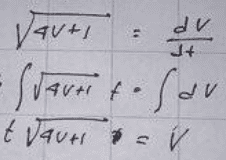 √(4V+1) = dV/dt
∫√(4V+1) t = ∫dV
t √(4V+1) = V